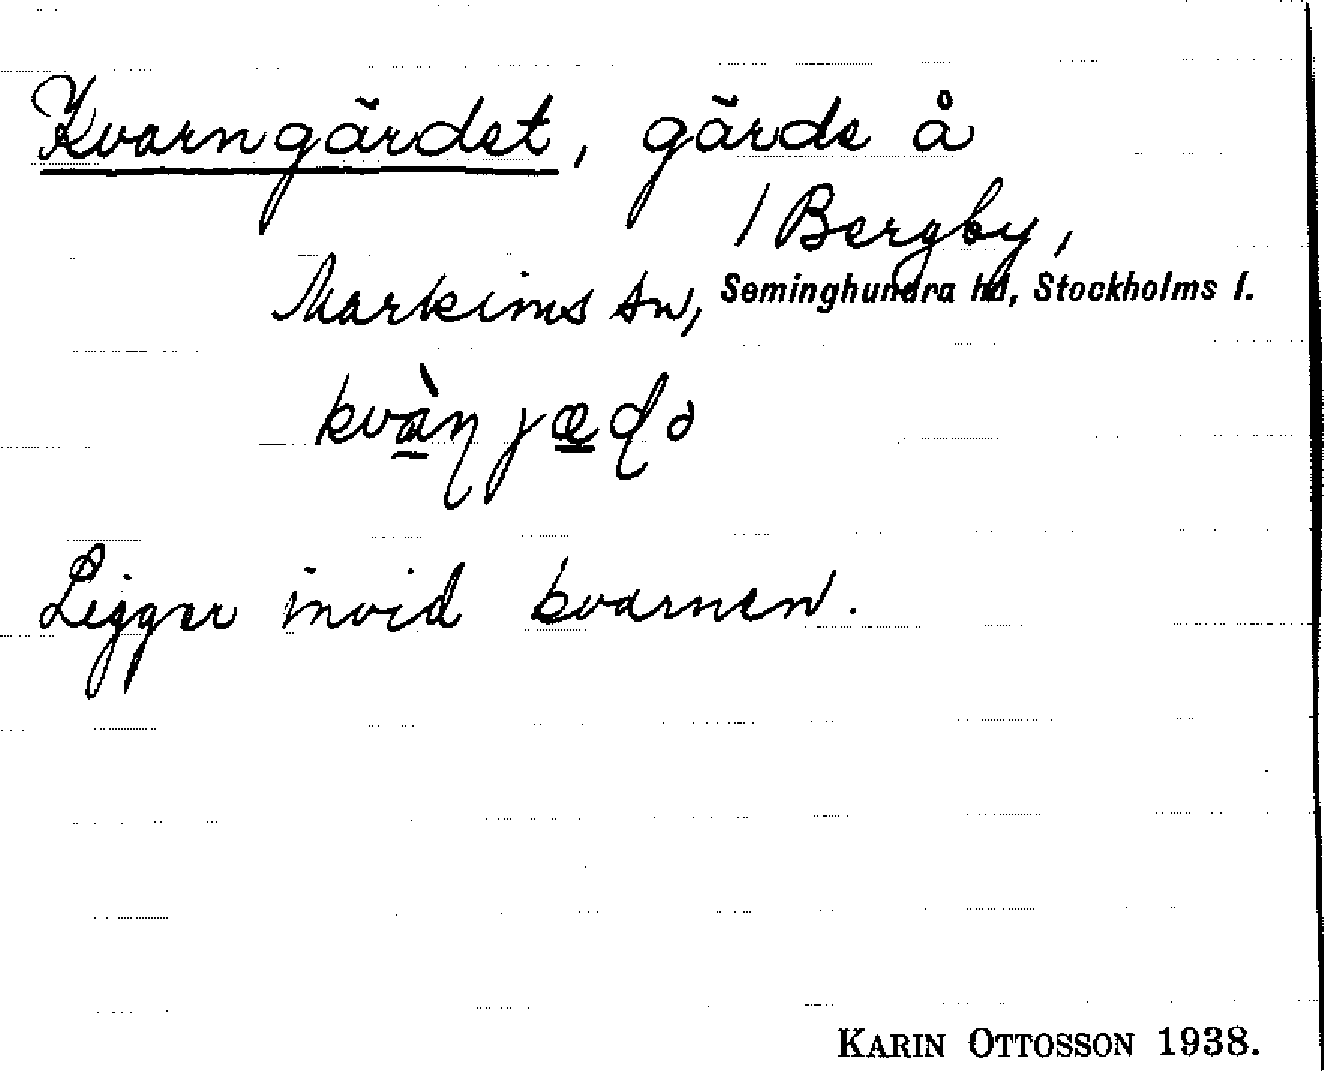 Kvarngärdet, gärde å
/ Bergby,
Markims sn, Seminghundra hd, Stockholms l.
Ligger invid kvarnen.
KARIN OTTOSSON 1938.